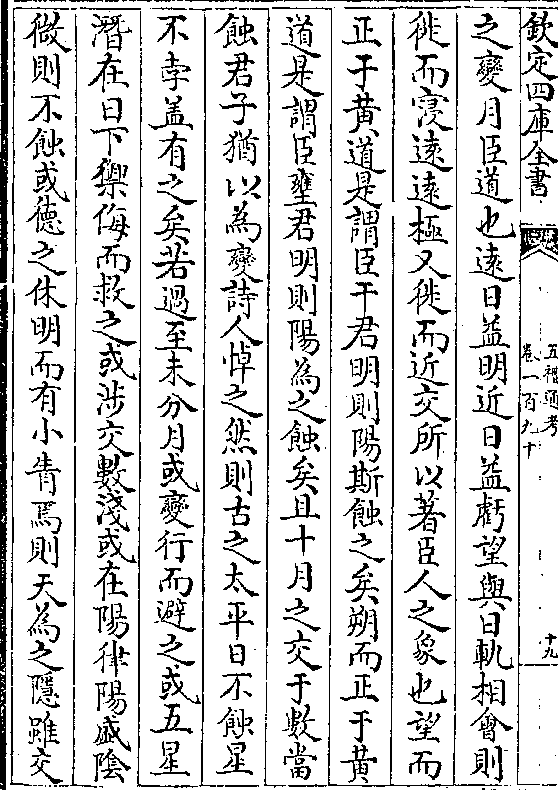 欽定四庫全書
五禮通考
卷一百九十
十九
之變月臣道也逺日益明近日益虧望與日軌相㑹則
徙而寖逺逺極又徙而近交所以著臣人之象也望而
正于黄道是謂臣干君明則陽斯蝕之矣朔而正于黄
道是謂臣壅君明則陽為之蝕矣且十月之交于數當
蝕君子猶以為變詩人悼之然則古之太平日不蝕星
不孛盖有之矣若過至未分月或變行而避之或五星
潛在日下禦侮而救之或涉交數淺或在陽律陽盛陰
微則不蝕或德之休明而有小眚焉則天為之隱雖交